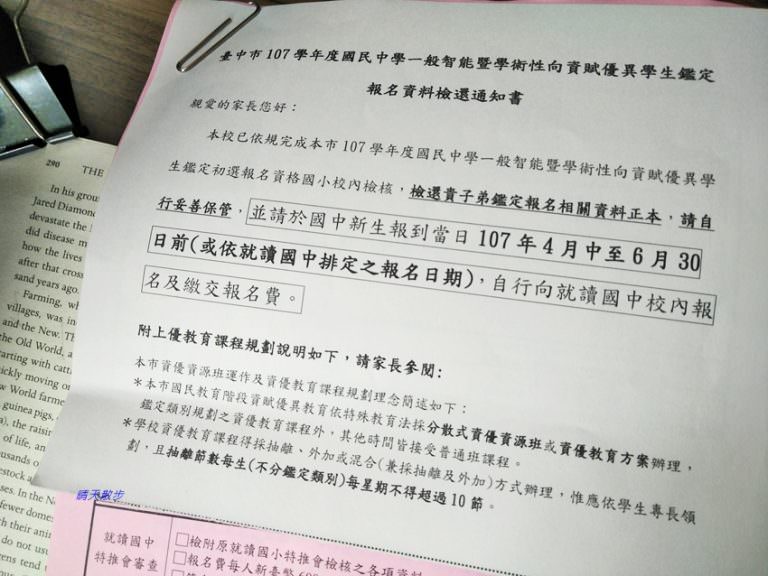 臺中市 107 學年度國民中學一般智能暨學術性向資賦優異學生鑑定
報名資料檢還通知書
親愛的家長您好：
本校已依規完成本市 107 學年度國民中學一般智能暨學術性向資賦優異學
生鑑定初選報名資格國小校內檢核，檢還貴子弟鑑定報名相關資料正本，請自
行妥善保管，並請於國中新生報到當日 107 年 4 月中至 6 月 30
日前(或依就讀國中排定之報名日期)，自行向就讀國中校內報
名及繳交報名費。
附上優教育課程規劃說明如下，請家長參閱:
本市資優資源班運作及資優教育課程規劃理念簡述如下：
＊本市國民教育階段資賦優異教育依特殊教育法採分散式資優資源班或資優教育方案辦理，
鑑定類別規劃之資優教育課程外，其他時間皆接受普通班課程。
＊學校資優教育課程得採抽離、外加或混合(兼採抽離及外加)方式辦理，惟應依學生專長領
劃，且抽離節數每生(不分鑑定類別)每星期不得超過 10 節。
晴天散步
就讀國中
特推會審查
□檢附原就讀國小特推會檢核之各項資料
□報名費每人新臺幣
290 THE
In his grou
Jared Diamond
devastate the
did disease m
how the lives
after that cross
sand years ago.
Farming, wh
villages, was in
and the New. Th
the Old World, a
tarting with catt
ickly moving o
w World farme
guinea pigs,
), the raisin
of life, an
ousands o
estock a
ses. In the N
fewer domes
th their ani
do not usu
rens tend t